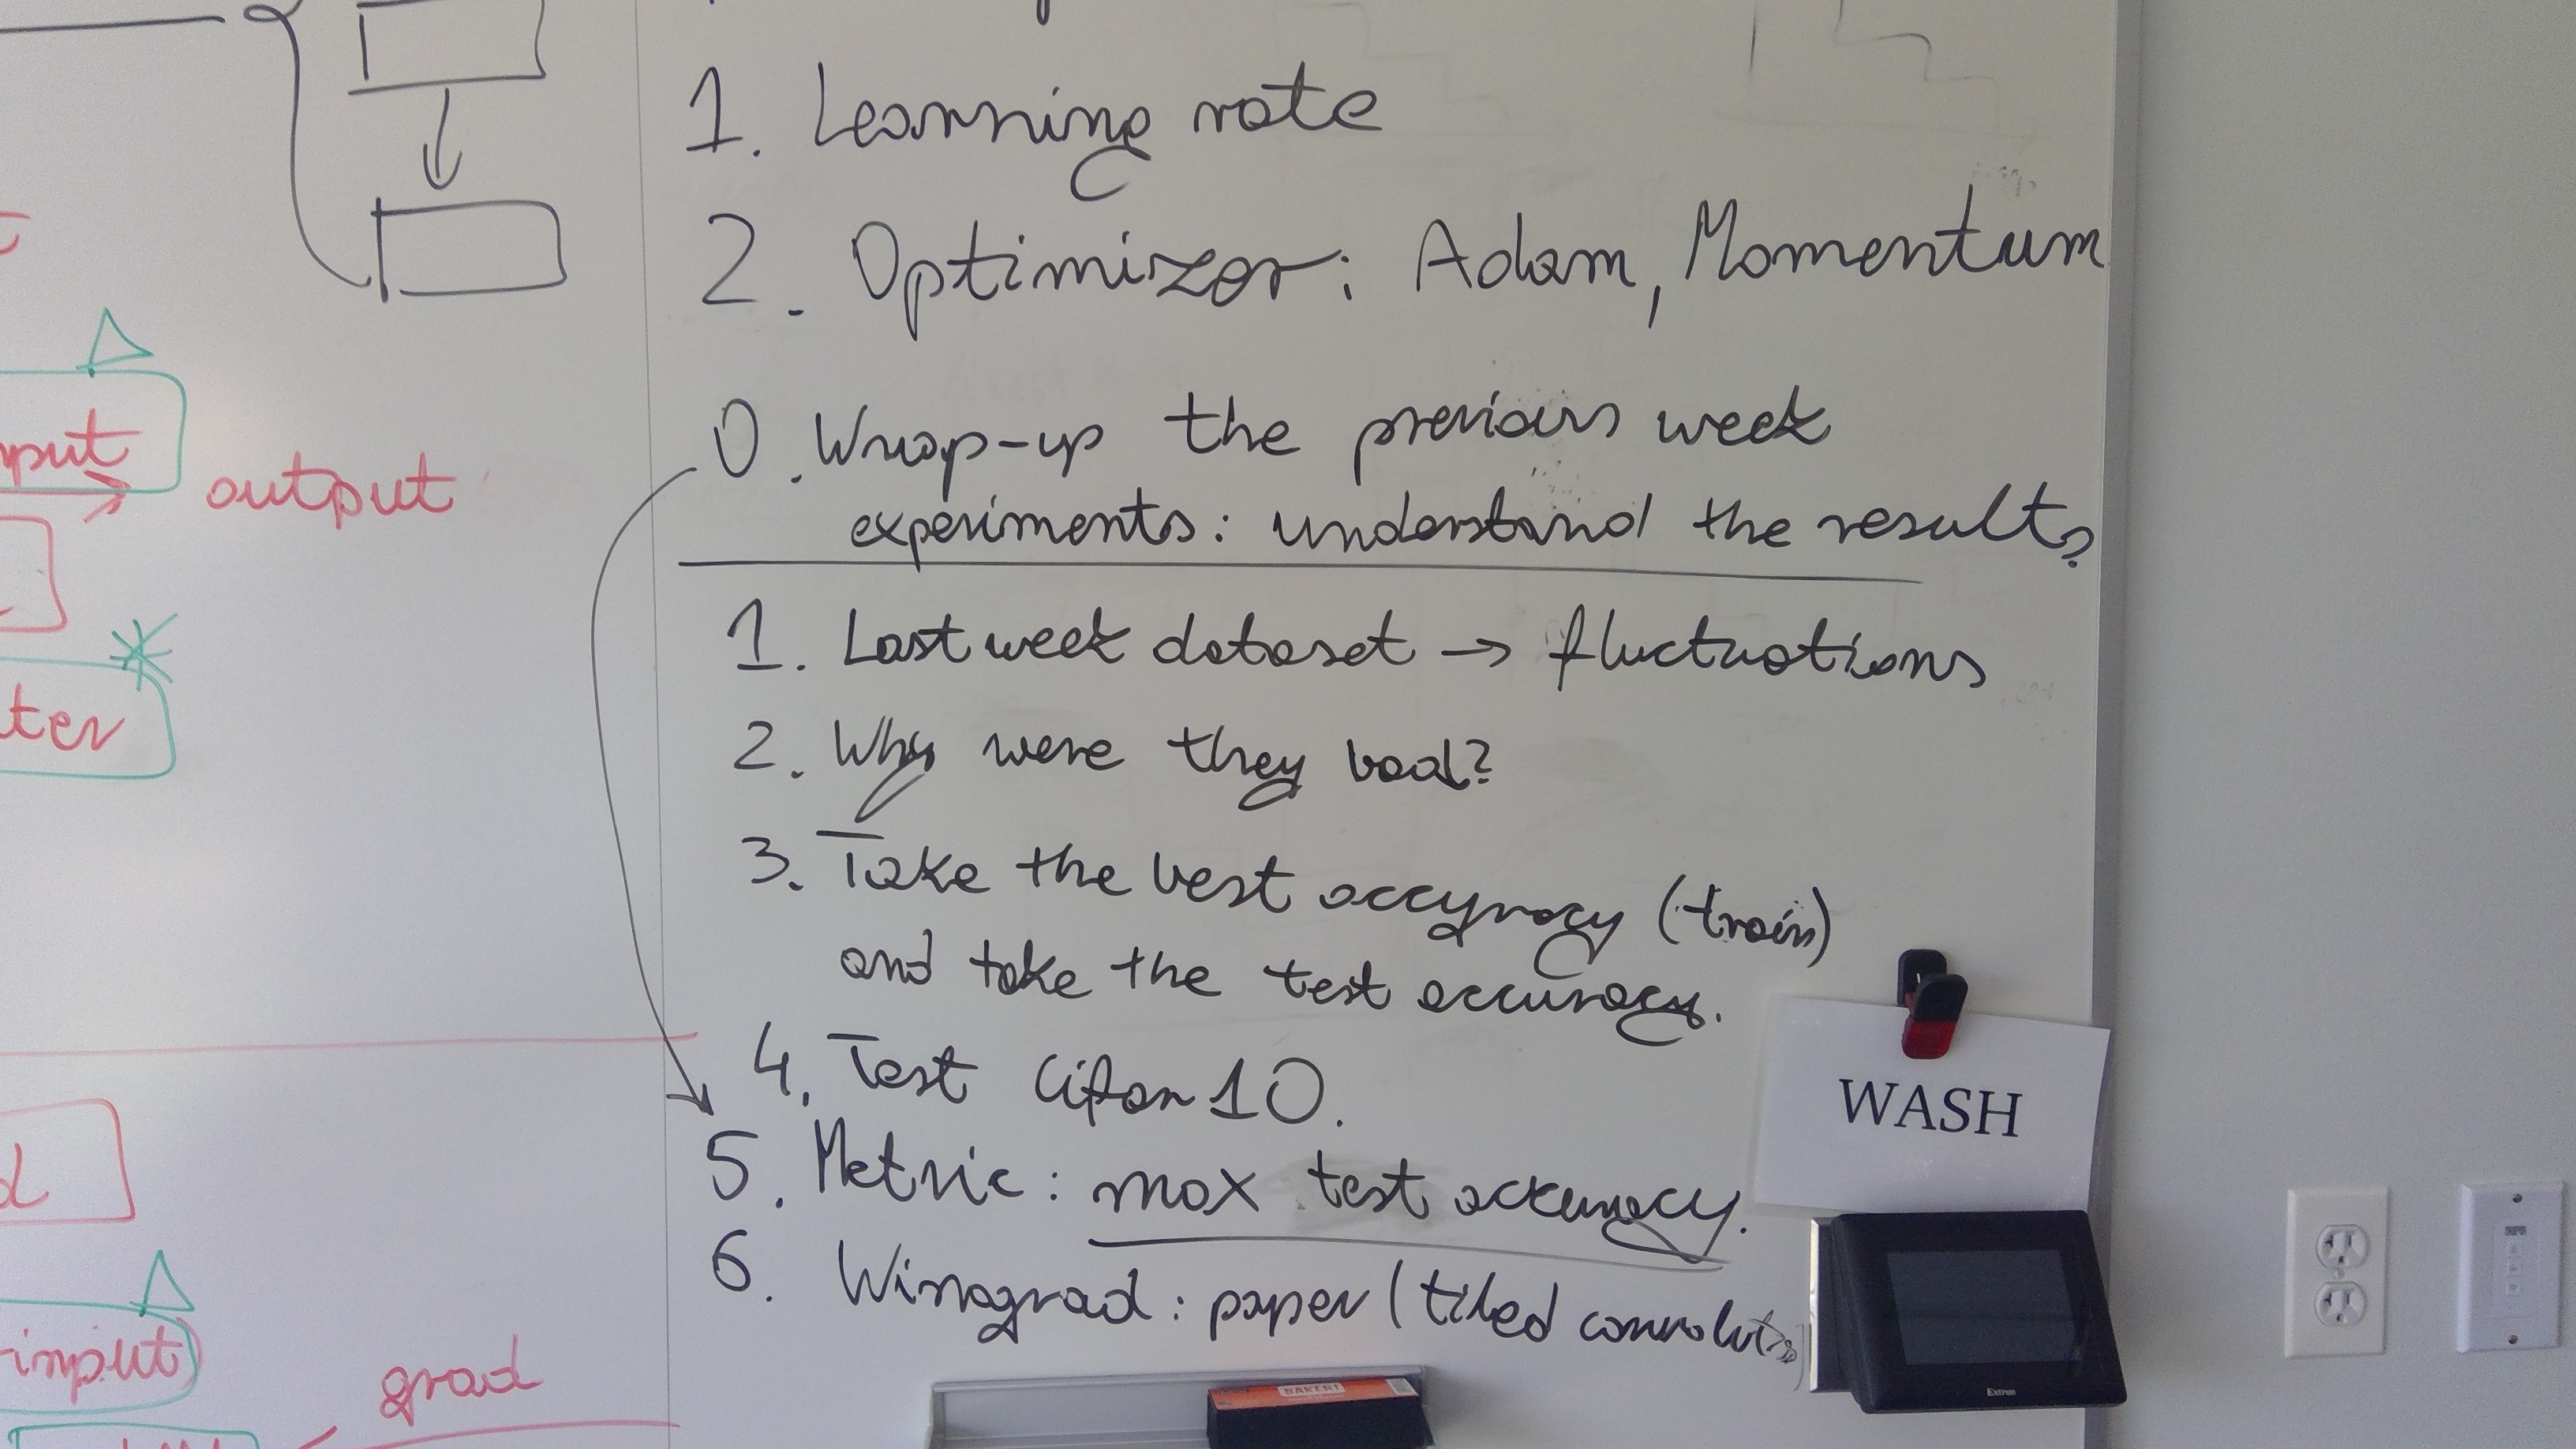 1. Learning rate
2. Optimizer: Adam, Momentum
0. Wrap-up the previous week
experiments: understand the results
1. Last week dataset → fluctuations
2. Why were they bad?
3. Take the best accyracy (train)
and take the test accuracy.
4. Test Cifar10.
5. Metric: max test accuracy.
6. Winograd: paper (tiled convolution)
output
grad
input)
WASH
Extron